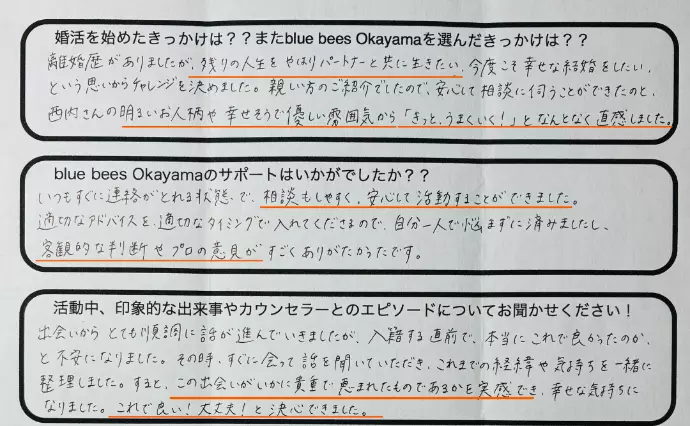 婚活を始めたきっかけは？？またblue bees Okayamaを選んだきっかけは？？
離婚歴がありましたが、残りの人生をやはりパートナーと共に生きたい、今度こそ幸せな結婚をしたい、
という思いからチャレンジを決めました。親しい方のご紹介でしたので、安心して相談に伺うことができたのと、
西内さんの明るいお人柄や幸せそうで優しい雰囲気から「きっと、うまくいく！」となんとなく直感しました。
blue bees Okayamaのサポートはいかがでしたか？？
いつもすぐに連絡がとれる状態で、相談もしやすく、安心して活動することができました。
適切なアドバイスを、適切なタイミングで入れてくださるので、自分一人で悩まずに済みましたし、
客観的な判断やプロの意見がすごくありがたかったです。
活動中、印象的な出来事やカウンセラーとのエピソードについてお聞かせください！
出会いからとても順調に話が進んでいきましたが、入籍する直前で、本当にこれで良かったのか、
と不安になりました。その時、すぐに会って話を聞いていただき、これまでの経緯や気持ちを一緒に
整理しました。すると、この出会いがいかに貴重で恵まれたものであるかを実感でき、幸せな気持ちに
なりました。これで良い！大丈夫！と決心できました。